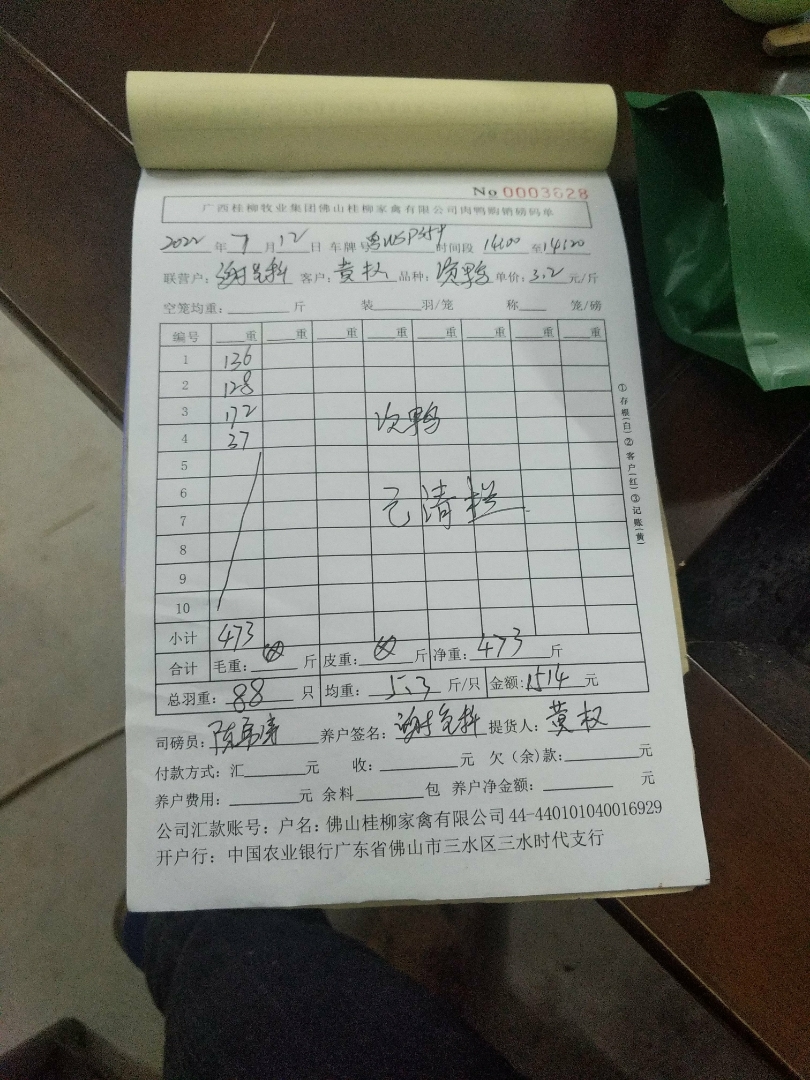 No 0003628
广西桂柳牧业集团佛山桂柳家禽有限公司肉鸭购销磅码单
2022 年 7 月 12 日 车牌号 时间段 14:00 至 14:20
联营户: 谢 客户: 黄权 品种: 次鸭 单价: 3.2 元/斤
空笼均重: 斤 装 羽/笼 称 笼/磅
编号 重 重 重 重 重 重 重 重
1 136
2 128
3 172 次鸭
4 37
5
6 已清栏
7
8
9
10
小计 473
合计 毛重: 斤 皮重: 斤 净重: 473 斤
总羽重: 88 只 均重: 5.3 斤/只 金额: 1514 元
司磅员: 陈 养户签名: 谢 提货人: 黄权
付款方式: 汇 元 收: 元 欠(余)款: 元
养户费用: 元 余料 包 养户净金额: 元
公司汇款账号: 户名: 佛山桂柳家禽有限公司 44-440101040016929
开户行: 中国农业银行广东省佛山市三水区三水时代支行
①存根(白)②客户(红)③记账(黄)